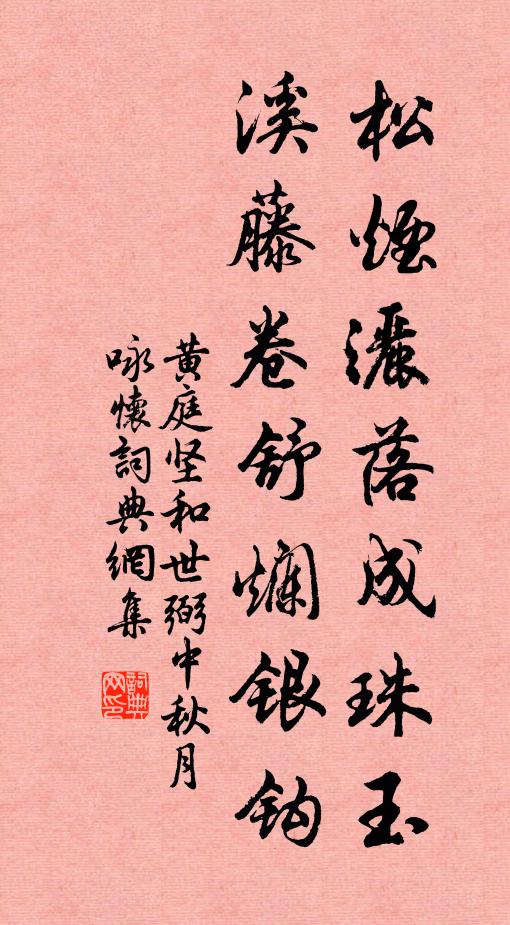 松煙灑落成珠玉
溪藤卷舒爛銀鈎
黄庭坚和世弼中秋月
咏懷詞典網集
詞典网印